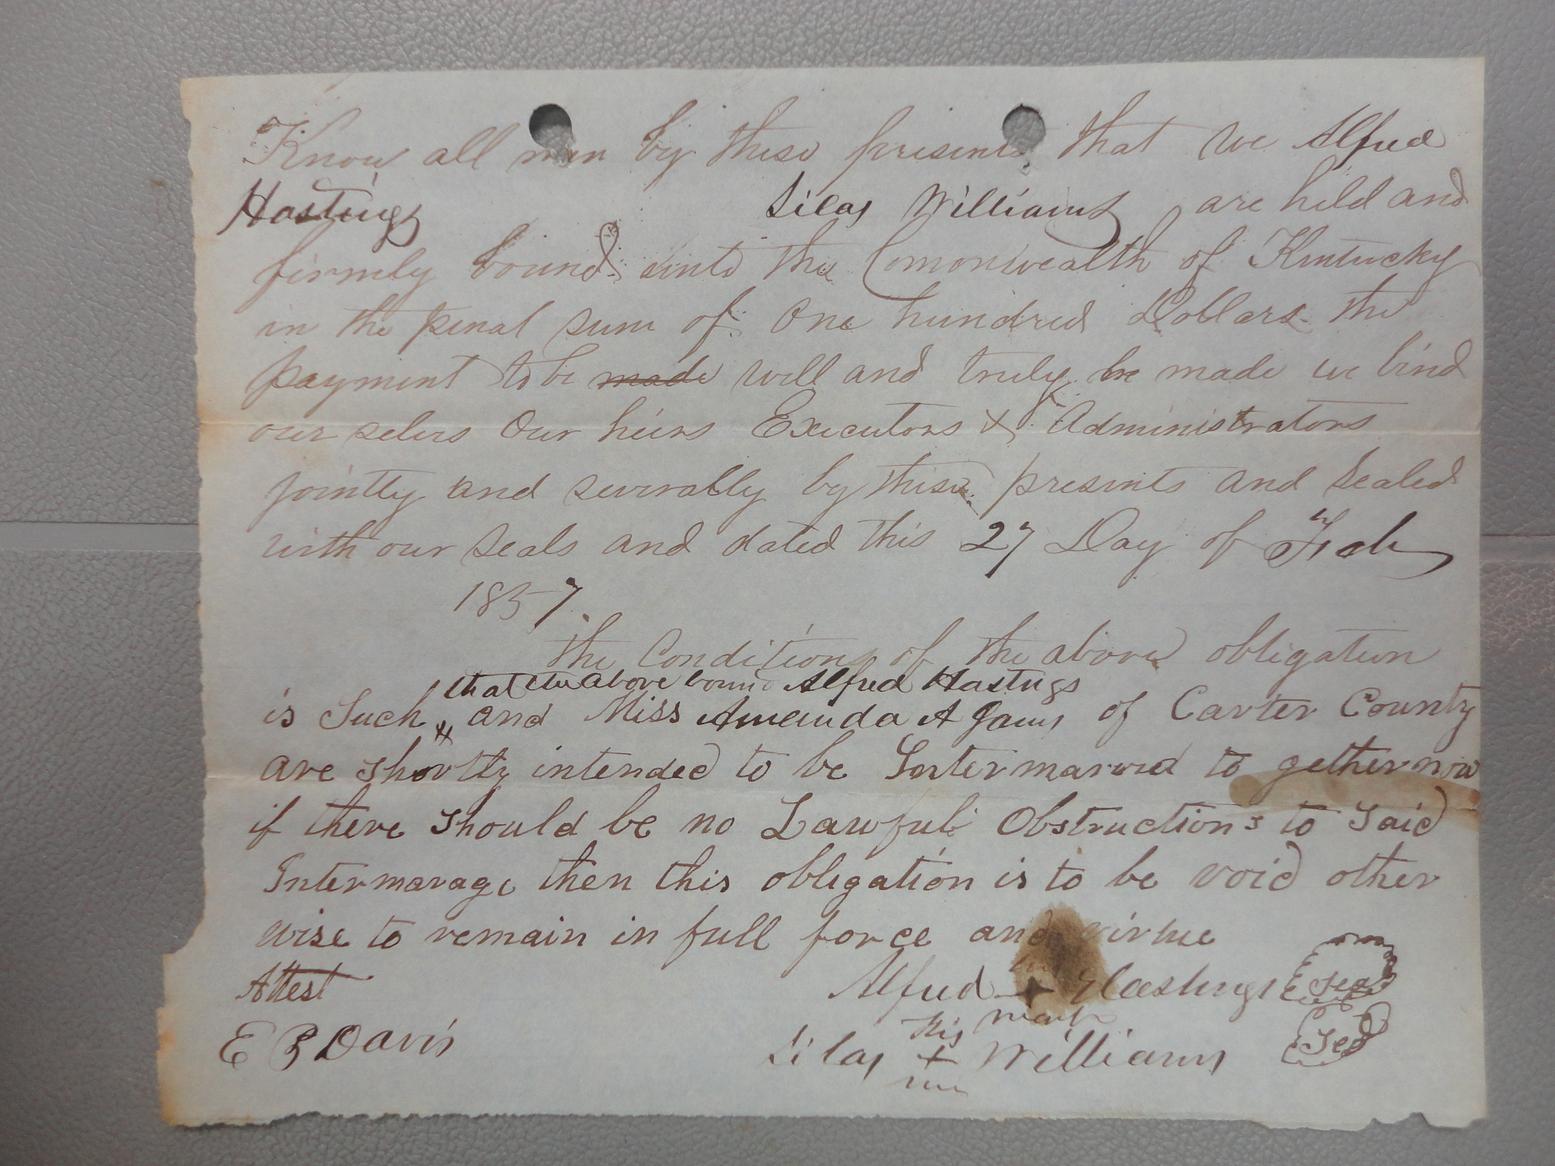 Know all men by these presents that we Alfred
Hastings Silas Williams are held and
firmely bound unto the Comonwealth of Kentucky
in the penal sum of One hundred Dollars the
payment to be made well and truly be made we bind
our selves Our heirs Executors & Administrators
jointly and severally by these presents and Sealed
with our Seals and dated this 27 Day of Feb
1857
the Condition of the above obligation
that the above bound Alfred Hastngs
is Such and Miss Amanda A of Carter County
are shortly intended to be Intermarried to gether now
if there should be no Lawful Obstructions to Said
Intermarage then this obligation is to be void other
wise to remain in full force and virtue
Attest Alfred + Hastings Seal
mark
E P Davis Silas his + Williams Seal